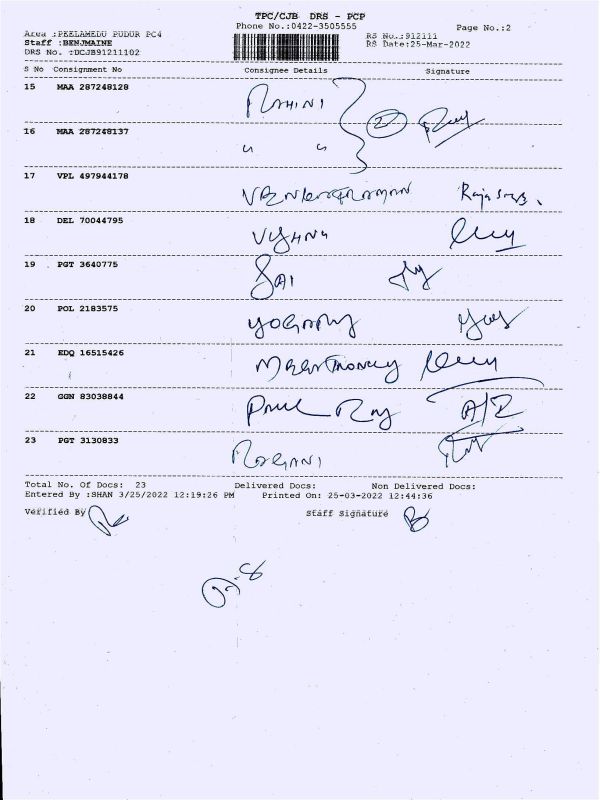 TPC/CJB DRS - PCP
Phone No.:0422-3505555 Page No.:2
Area :PEELAMEDU PUDUR PC4 RS No.:912111
Staff :BENJMAINE RS Date:25-Mar-2022
DRS No. :DCJB91211102
S No Consignment No Consignee Details Signature
15 MAA 287248128 ROHINI
16 MAA 287248137 " " 2
17 VPL 497944178
18 DEL 70044795
19 PGT 3640775 SAI
20 POL 2183575
21 EDQ 16515426
22 GGN 83038844 Paul Roy
23 PGT 3130833
Total No. Of Docs: 23 Delivered Docs: Non Delivered Docs:
Entered By :SHAN 3/25/2022 12:19:26 PM Printed On: 25-03-2022 12:44:36
Verified By Staff Signature